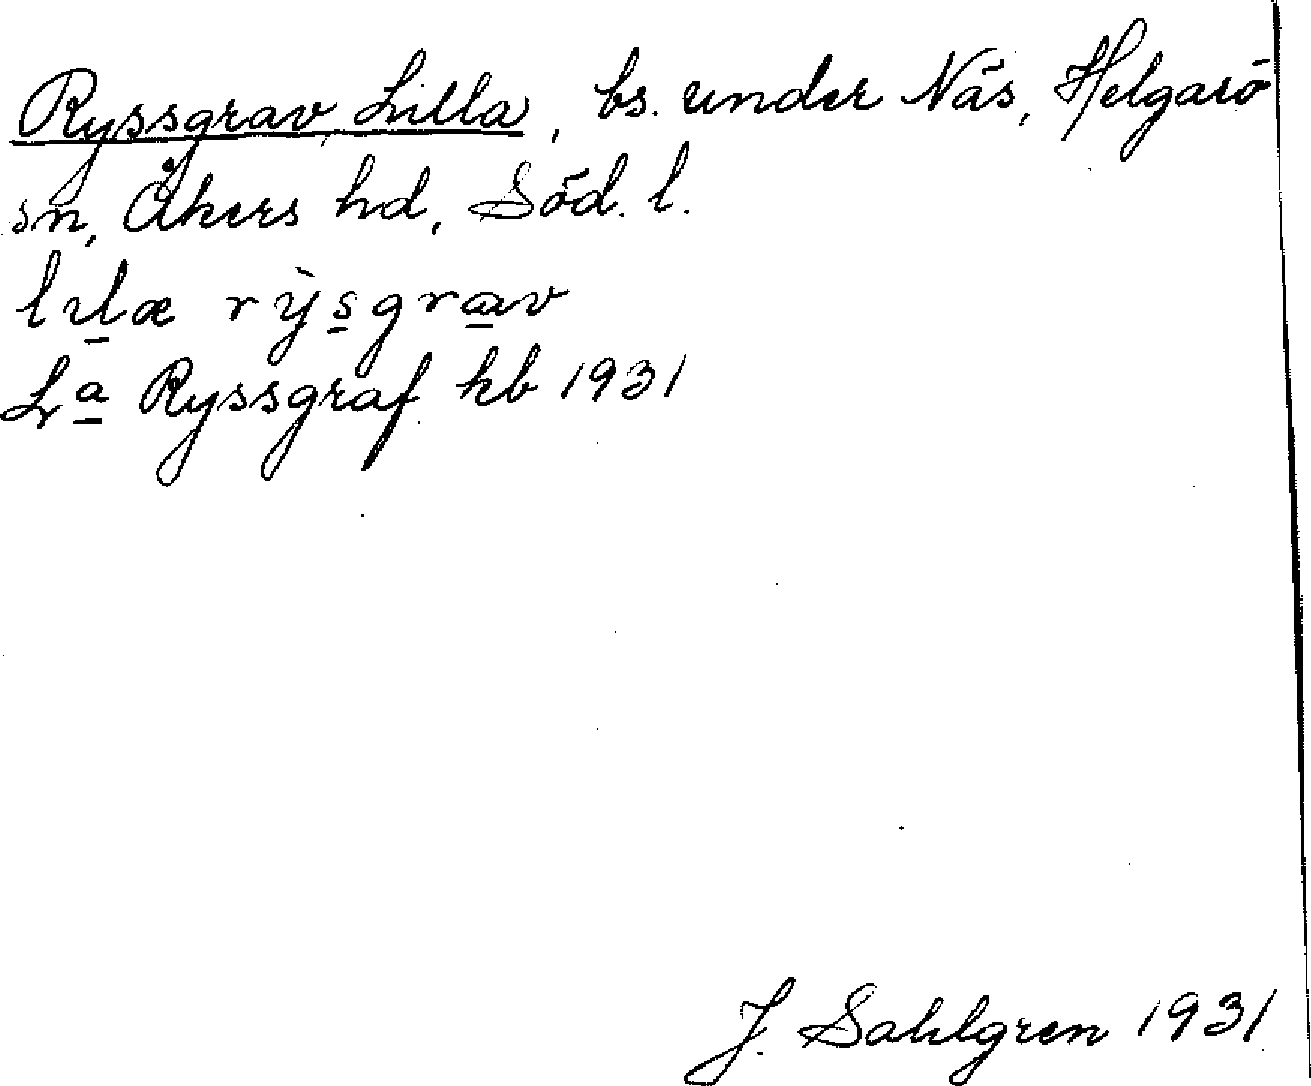 Ryssgrav, Lilla, bs. under Näs, Helgarö
sn, Åkers hd, Söd. l.
lıl̲æ rỳs̲græ̲v
L<sup>a</sup> Ryssgraf kb 1931
J. Sahlgren 1931